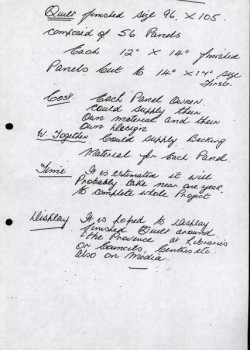 Quilt finished size 96. X 105.
composed of 56 Panels
Each 12" X 14" finished
Panels cut to 14" X 14" size
first.
Cost. Each Panel Owner.
could supply their
own material and their
own design
W. Together Could supply Backing
Material for each Panel.
Time. It is estimated it will
Probably take near one year
to complete whole Project
Display It is hoped to display
finished Quilt around
the Province at Libraries
or Councils, Centres etc.
also on Media